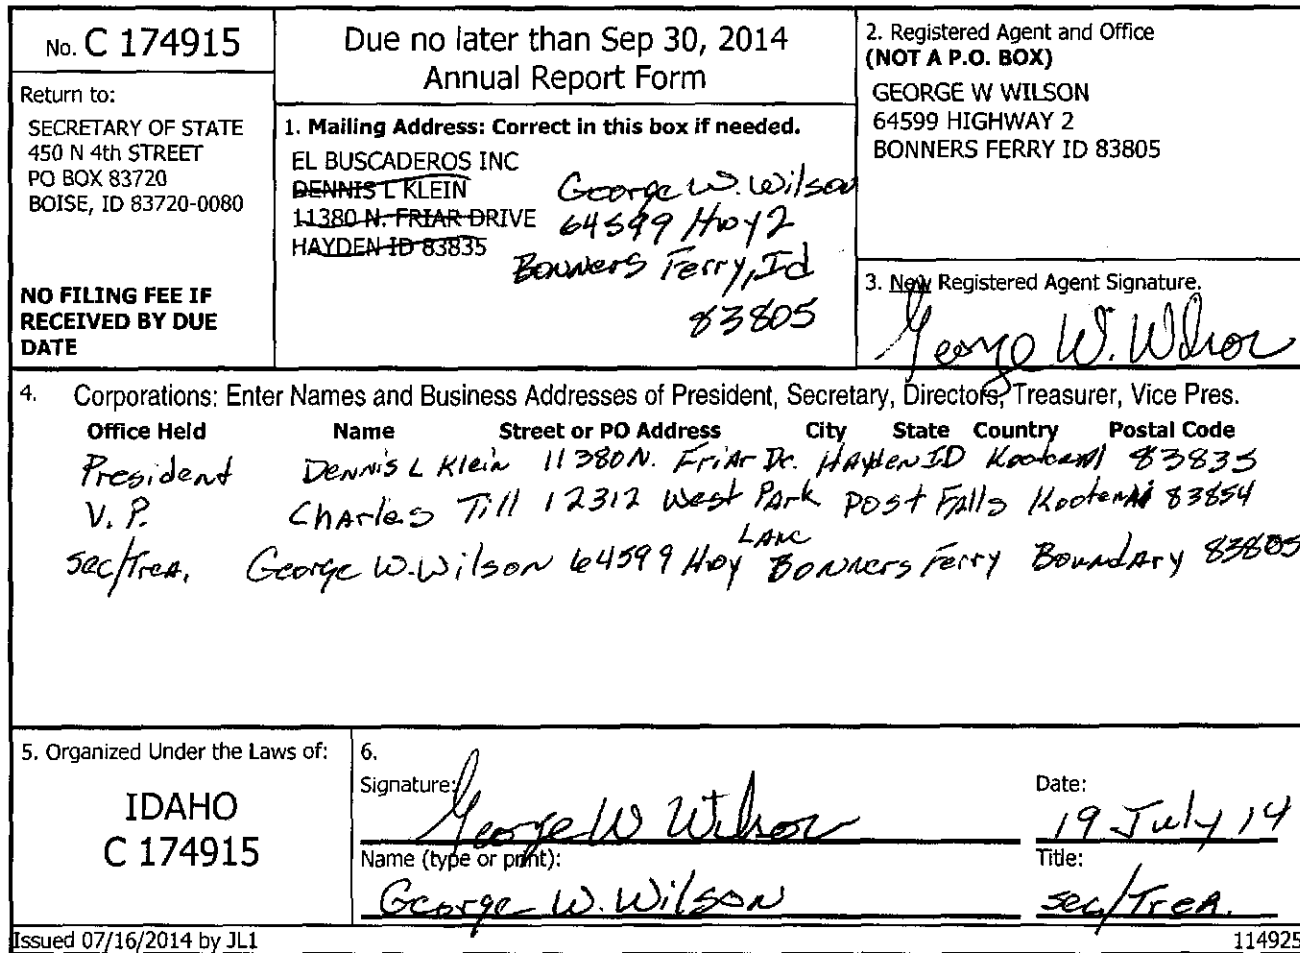 No. C 174915
Return to:
SECRETARY OF STATE
450 N 4th STREET
PO BOX 83720
BOISE, ID 83720-0080
NO FILING FEE IF
RECEIVED BY DUE
DATE
Due no later than Sep 30, 2014
Annual Report Form
1. Mailing Address: Correct in this box if needed.
EL BUSCADEROS INC
DENNIS L KLEIN
11380 N. FRIAR DRIVE
HAYDEN ID 83835
George W. Wilson
64599 Hwy 2
Bonners Ferry, Id
83805
2. Registered Agent and Office
(NOT A P.O. BOX)
GEORGE W WILSON
64599 HIGHWAY 2
BONNERS FERRY ID 83805
3. New Registered Agent Signature.
George W. Wilson
4. Corporations: Enter Names and Business Addresses of President, Secretary, Directors, Treasurer, Vice Pres.
Office Held Name Street or PO Address City State Country Postal Code
President Dennis L Klein 11380 N. Friar Dr. Hayden ID Kootenai 83835
V. P. Charles Till 12312 West Park Post Falls Kootenai 83854
Lane
Sec/Trea. George W. Wilson 64599 Hwy Bonners Ferry Boundary 83805
5. Organized Under the Laws of:
IDAHO
C 174915
6.
Signature:
George W Wilson
Date:
19 July 14
Name (type or print):
George W. Wilson
Title:
Sec/Trea.
Issued 07/16/2014 by JL1
114925